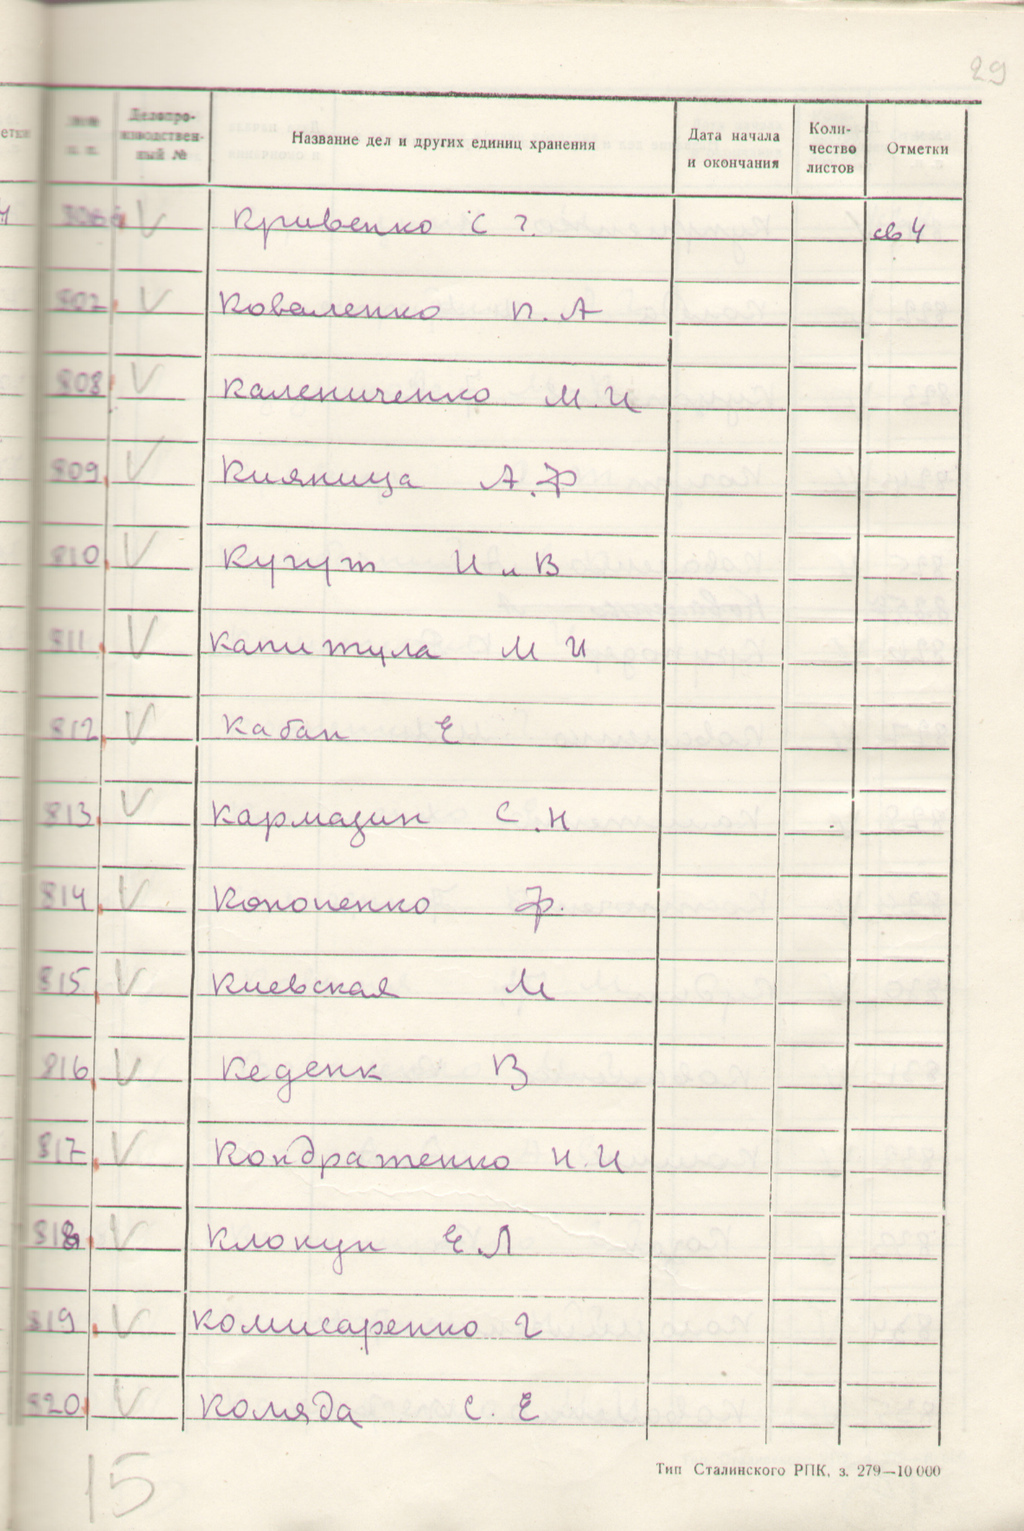 29
Делопро-
изводствен-
ный №
Название дел и других единиц хранения
Дата начала
и окончания
Коли-
чество
листов
Отметки
806 V Кривенко С Г. св 4
807. V Коваленко П. А
808 V Калениченко М. И
809. V Кияница А. Ф
810. V Кугут И и В
811. V Капитула М И
812. V Кабан Е
813. V Кармазин С. Н
814. V Кононенко Ф.
815. V Киевская М
816. V Кеденк В
817. V Кондратенко Н. И
818. V Клокун Е Л
819. V Комисаренко Г
820. V Коляда С. Е
15
Тип Сталинского РПК, з. 279—10 000